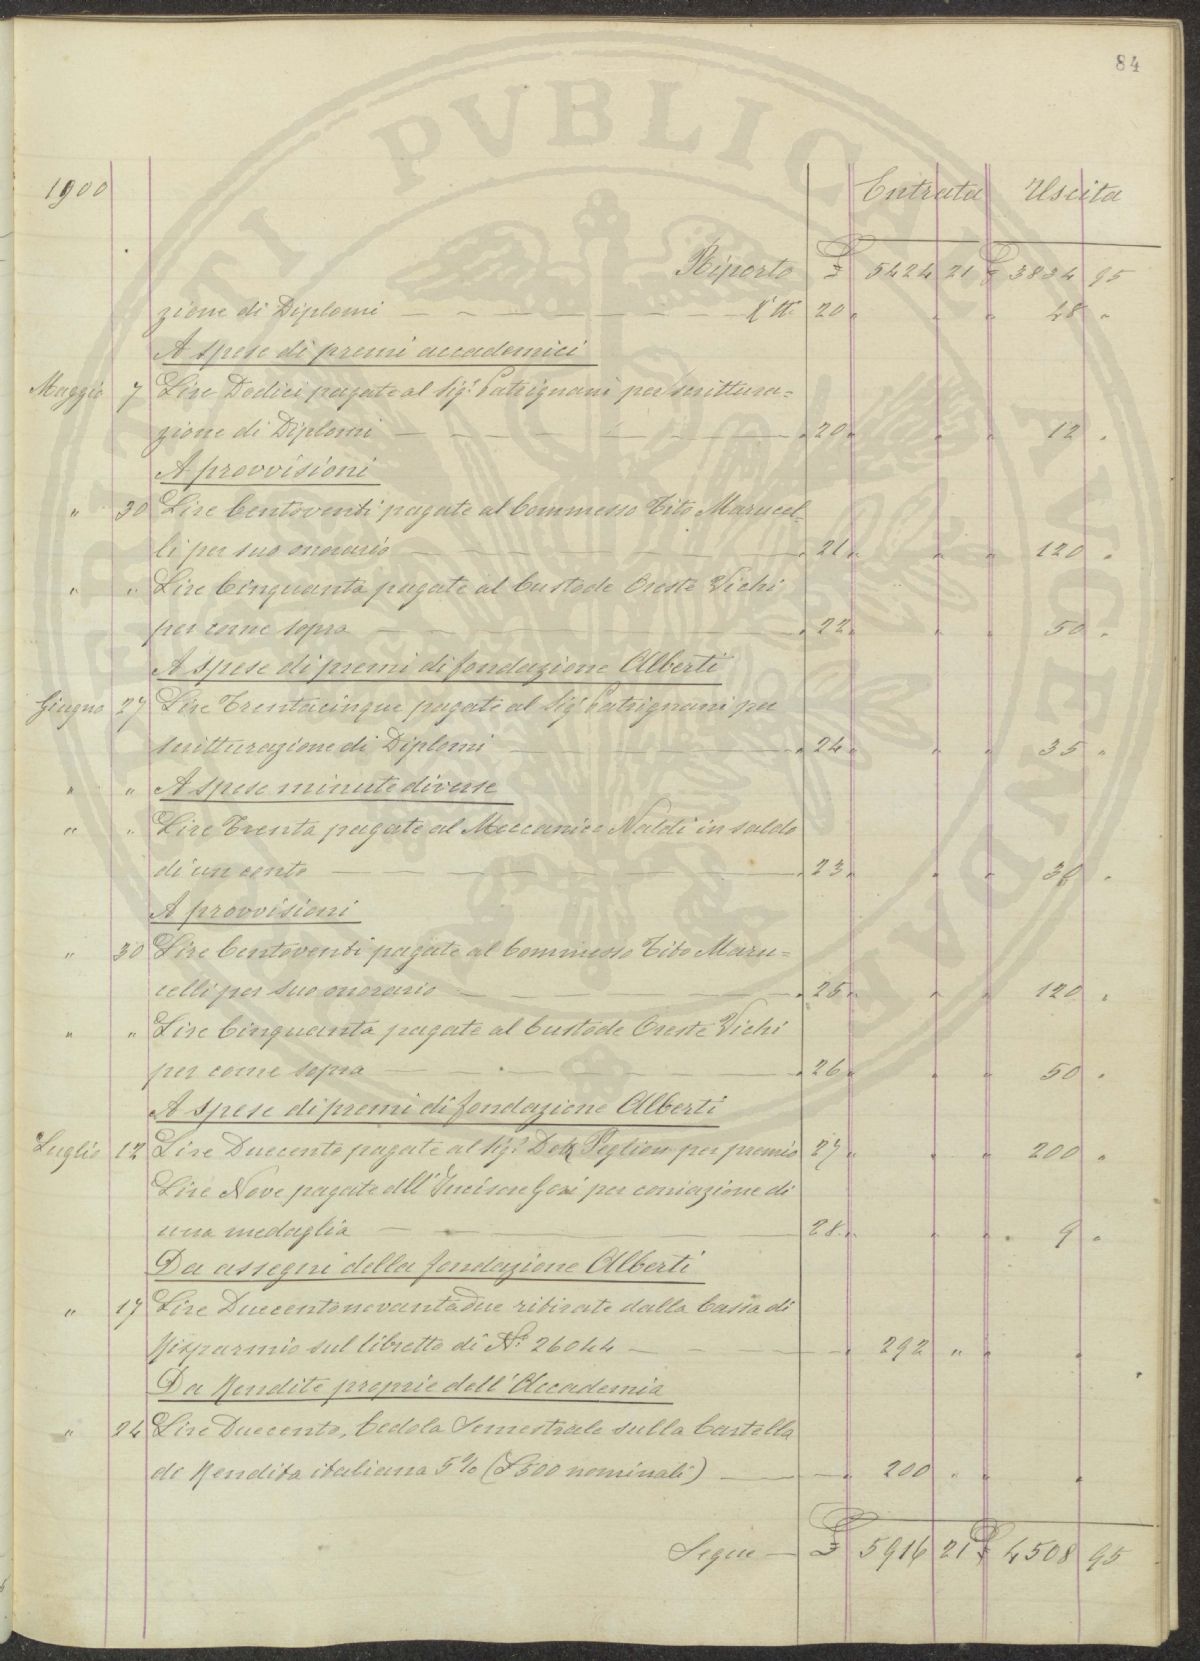 84
1900 Entrata Uscita
Riporto £ 5424 21 £ 3834 95
zione di Diplomi 20 " " " 48 "
A spese di premi accademici
Maggio 7 Lire Dodici pagate al Sig.r Patrignani per scrittura=
zione di Diplomi " 20 " " " 12 "
A provvisioni
" 30 Lire Centoventi pagate al Commesso Tito Marucel-
li per suo onorario " 21 " " " 120 "
" " Lire Cinquanta pagate al Custode Oreste Vichi
per come sopra " 22 " " " 50 "
A spese di premi di fondazione Alberti
Giugno 27 Lire Trentacinque pagate al Sig.r Patrignani per
scritturazione di Diplomi " 24 " " " 35 "
" " A spese minute diverse
" " Lire Trenta pagate al Meccanico Naldi in saldo
di un conto " 23 " " " 30 "
A provvisioni
" 30 Lire Centoventi pagate al Commesso Tito Maru=
celli per suo onorario " 25 " " " 120 "
" " Lire Cinquanta pagate al Custode Oreste Vichi
per come sopra " 26 " " " 50 "
A spese di premi di fondazione Alberti
Luglio 12 Lire Duecento pagate al Sig.r Dott. Peglion per premio 27 " " " 200 "
Lire Nove pagate all'Incisore Gori per coniazione di
una medaglia 28 " " " 9 "
Da assegni della fondazione Alberti
" 17 Lire Duecentonovantadue ritirate dalla Cassa di
Risparmio sul libretto di N.º 26044 " 292 " " "
Da Rendite proprie dell'Accademia
" 24 Lire Duecento, Cedola Semestrale sulla Cartella
di Rendita italiana 5% (£500 nominali) " 200 " " "
Segue £ 5916 21 £ 4508 95
PVBLICAE
AVGENDAE